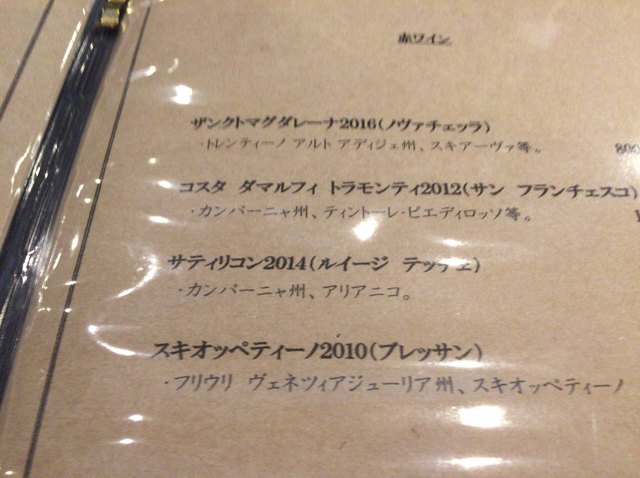 赤ワイン
ザンクトマグダレーナ2016(ノヴァチェッラ)
・トレンティーノ アルト アディジェ州、スキアーヴァ等。
コスタ ダマルフィ トラモンティ2012(サン フランチェスコ)
・カンパーニャ州、ティントーレ・ピエディロッソ等。
サティリコン2014(ルイージ テッチェ)
・カンパーニャ州、アリアニコ。
スキオッペティーノ2010(ブレッサン)
・フリウリ ヴェネツィアジューリア州、スキオッペティーノ